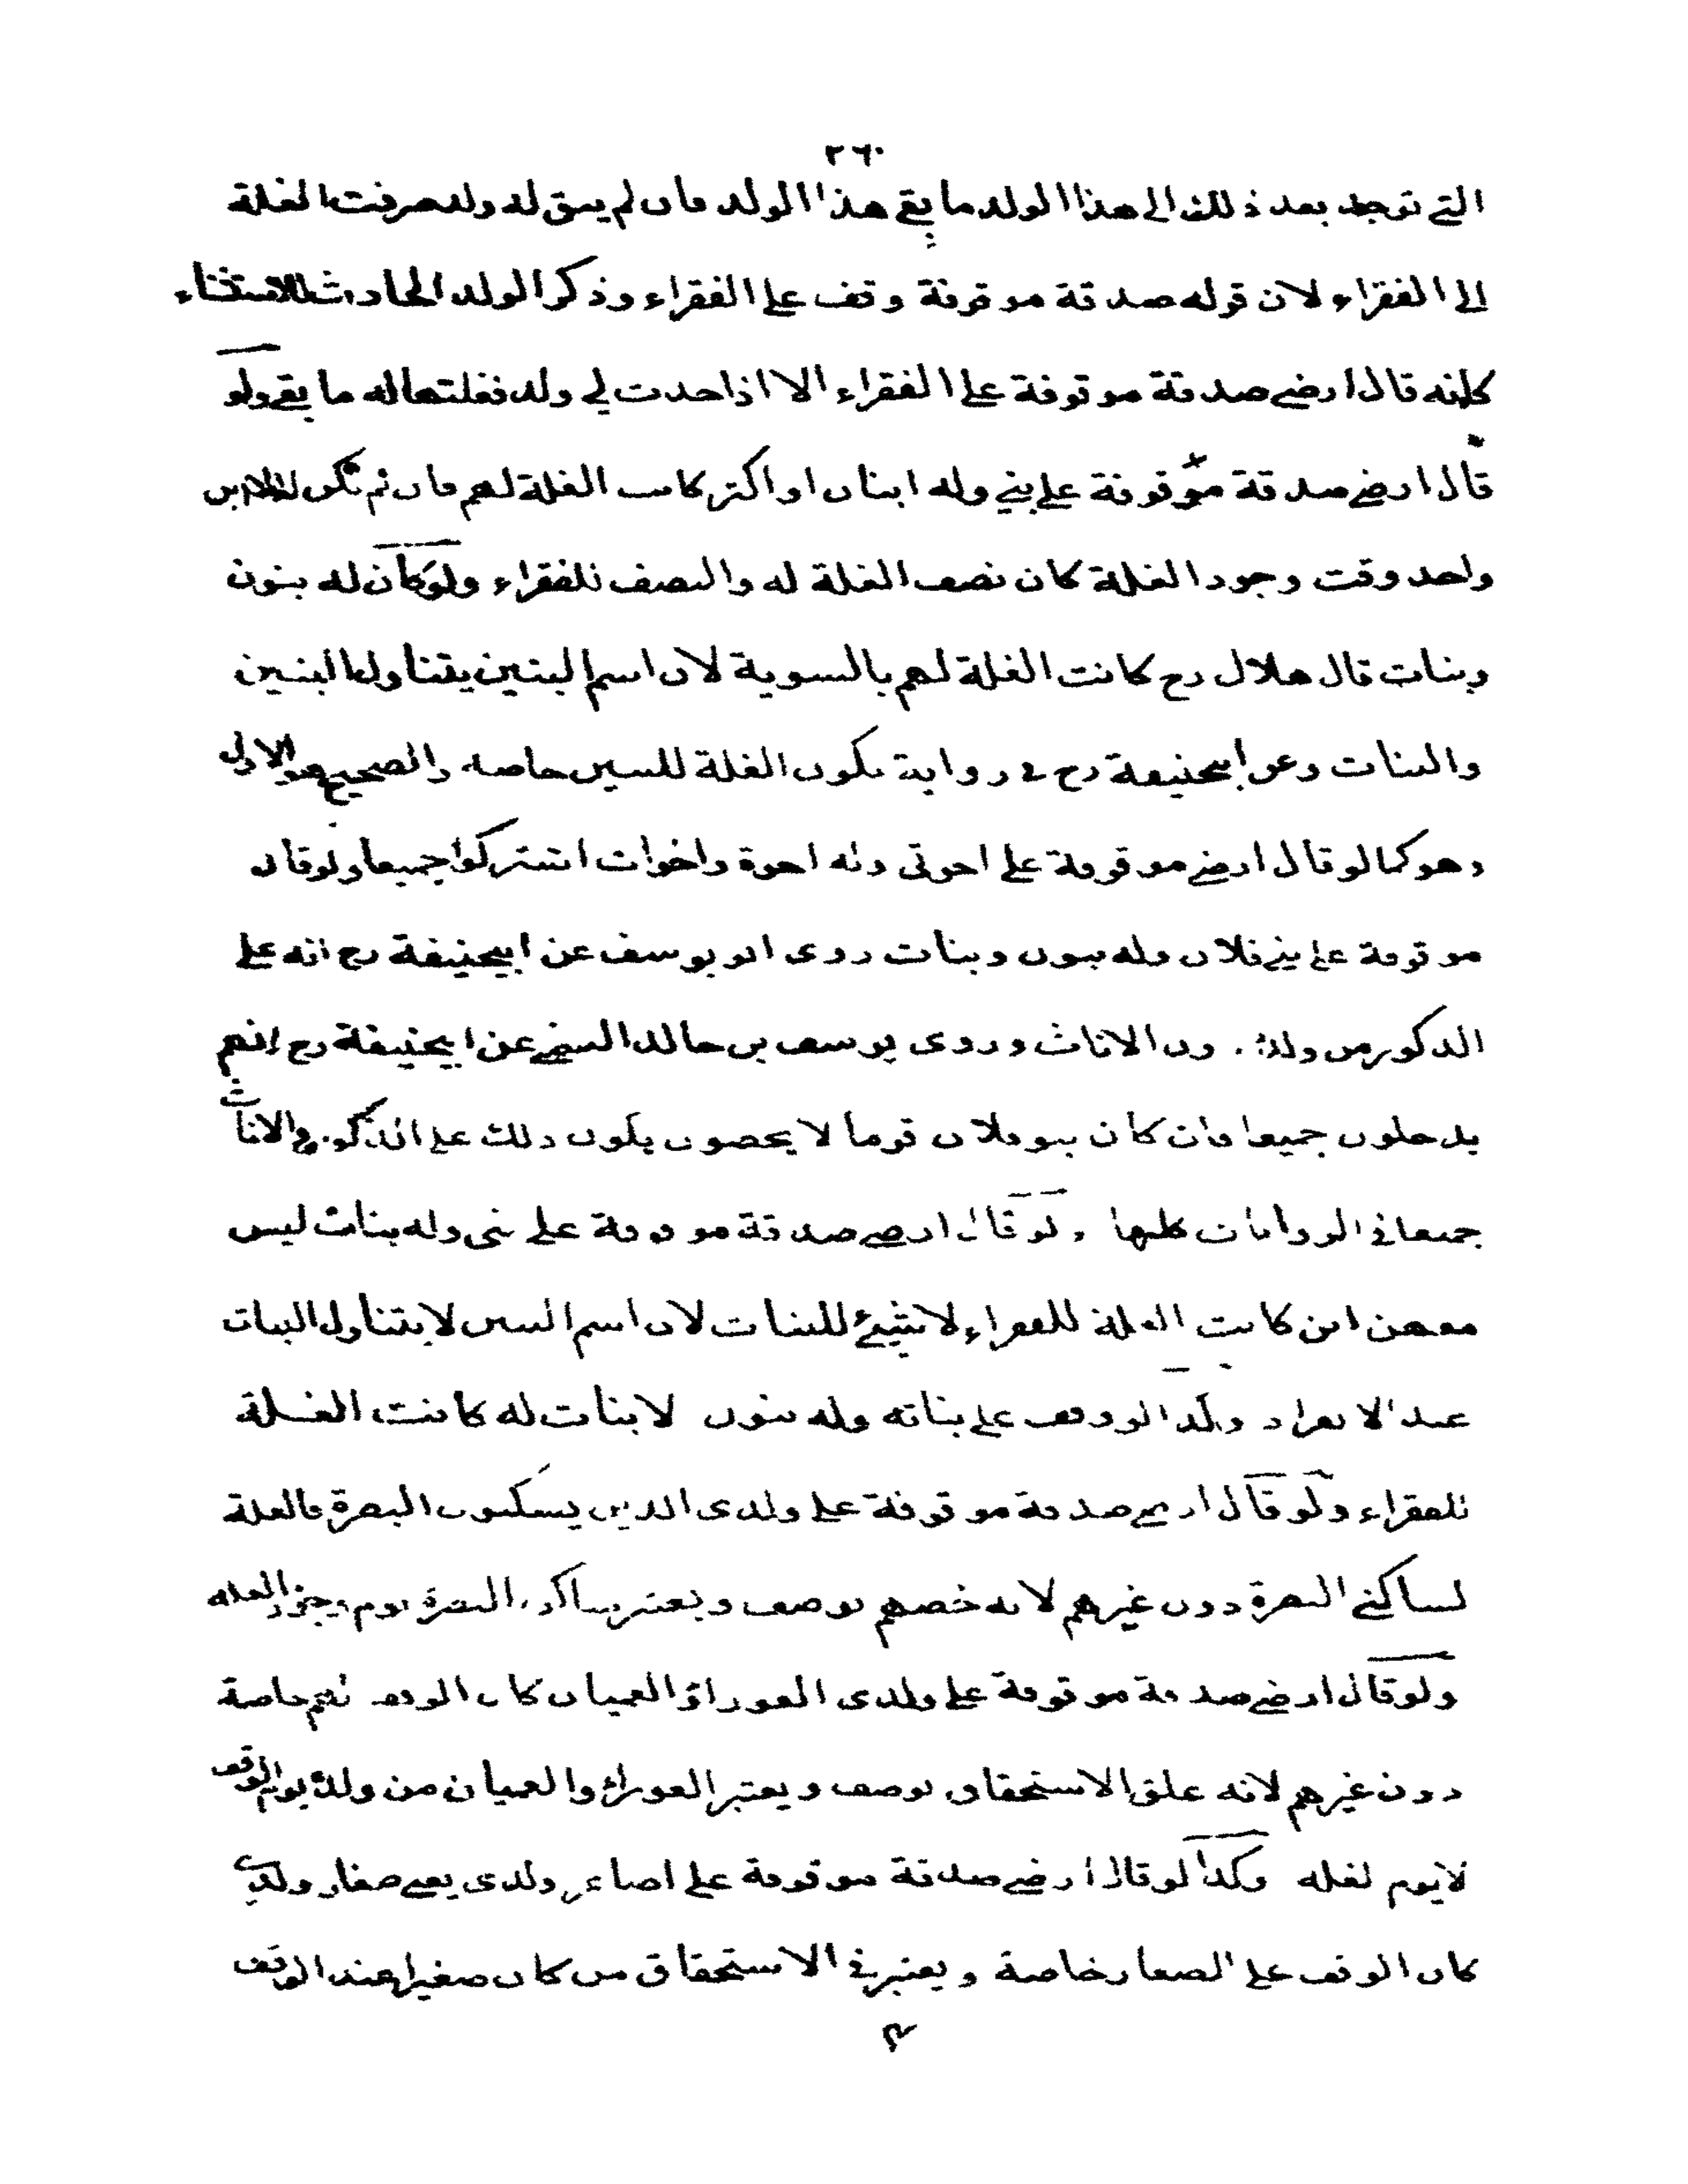 ٢٦٠
التي توجد بعد ذلك الى هذا الولد ما بقي هذا الولد فان لم يبق له ولد صرفت الغلة
الى الفقراء لان قوله صدقة موقوفة وقف على الفقراء وذكر الولد الحادث للاستثناء
كانه قال ارضي صدقة موقوفة على الفقراء الا اذا حدث لي ولد فغلتها له ما بقي ولو
قال ارضي صدقة موقوفة على بني وله ابنان او اكثر كانت الغلة لهم فان لم تكن له الا ابن
واحد وقت وجود الغلة كان نصف الغلة له والنصف للفقراء ولو كان له بنون
وبنات قال هلال رح كانت الغلة لهم بالسوية لان اسم البنين يتناول البنين
والبنات وعن ابيحنيفة رح في رواية تكون الغلة للبنين خاصة والصحيح هو الاولى
وهو كما لو قال ارضي موقوفة على اخوتي وله اخوة واخوات اشتركوا جميعا ولو قال
موقوفة على بني فلان وله بنون وبنات روى ابو يوسف عن ابيحنيفة رح انه على
الذكور من ولده دون الاناث وروى يوسف بن خالد السمتي عن ابيحنيفة رح انهم
يدخلون جميعا فان كان بنو فلان قوما لا يحصون يكون ذلك على الذكور والاناث
جميعا في الروايات كلها ولو قال ارضي صدقة موقوفة على بني وله بنات ليس
معهن ابن كانت الغلة للفقراء لا شيئ للبنات لان اسم البنين لا يتناول البنات
عند الانفراد وكذا لو وقف على بناته وله بنون لا بنات له كانت الغلة
للفقراء ولو قال ارضي صدقة موقوفة على ولدى الذين يسكنون البصرة فالغلة
لساكني البصرة دون غيرهم لانه خصهم بوصف ويعتبر ساكن البصرة يوم وجود الغلة
ولو قال ارضي صدقة موقوفة على ولدى العوران والعميان كان الوقف لهم خاصة
دون غيرهم لانه علق الاستحقاق بوصف ويعتبر العوران والعميان من ولده يوم الوقف
لا يوم الغلة وكذا لو قال ارضي صدقة موقوفة على اصاغر ولدى يعني صغار ولدي
كان الوقف على الصغار خاصة ويعتبر في الاستحقاق من كان صغيرا عند الوقف